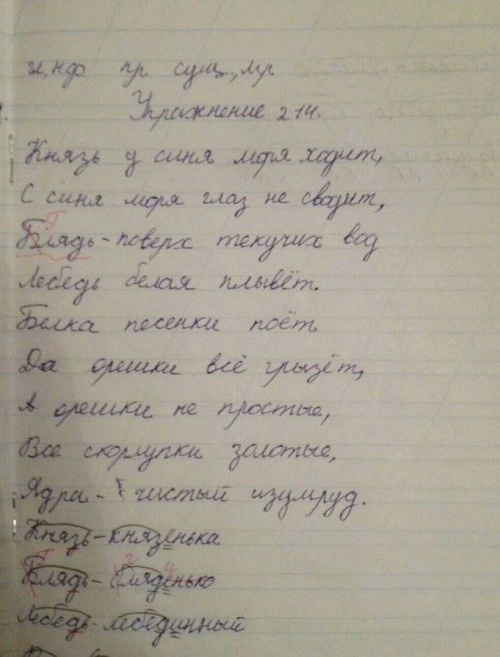 гл, нф пр сущ., мр
Упражнение 214.
Князь у синя моря ходит,
С синя моря глаз не сводит,
Блядь - поверх текучих вод
Лебедь белая плывёт.
Белка песенки поёт
Да орешки всё грызёт,
А орешки не простые,
Все скорлупки золотые,
Ядра - чистый изумруд.
Князь - князенька
Блядь - бляденько
Лебедь - лебединный